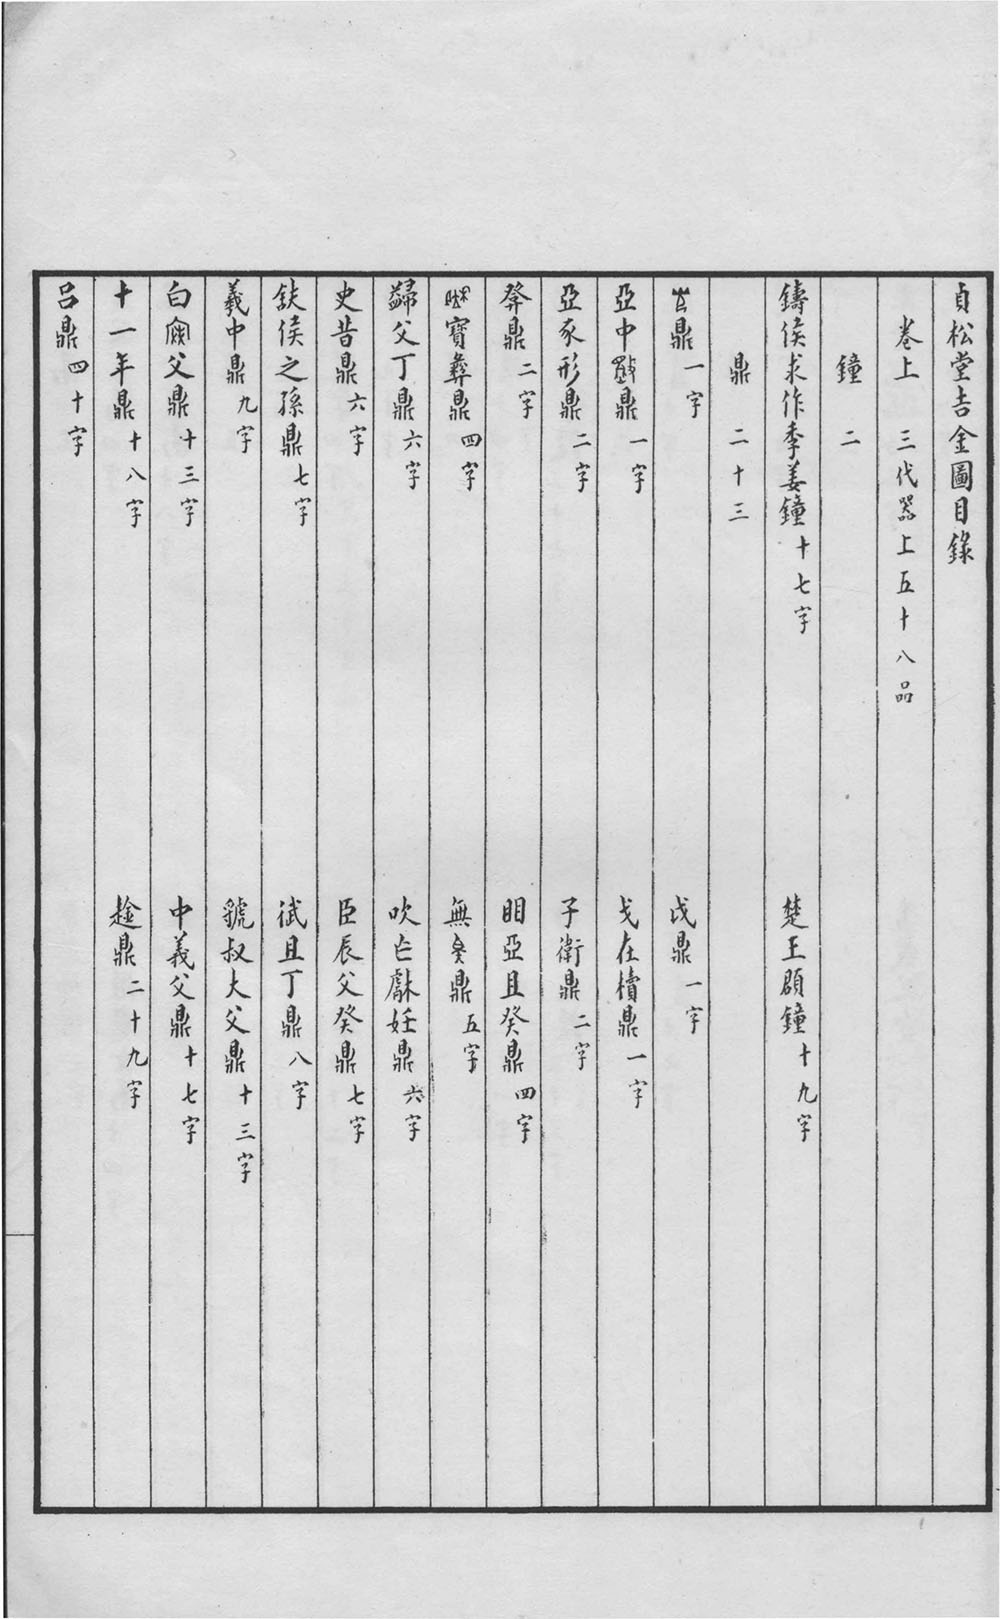 貞松堂吉金圖目錄
卷上 三代器上五十八品
鐘 二
鑄侯求作季姜鐘十七字 楚王頵鐘十九字
鼎 二十三
鼎一字 戊鼎一字
亞中鼎一字 戈在櫝鼎一字
亞豕形鼎二字 子衛鼎二字
鼎二字 明亞且癸鼎四字
寶彝鼎四字 無鼎五字
父丁鼎六字 吹乍妊鼎六字
史昔鼎六字 臣辰父癸鼎七字
侯之孫鼎七字 且丁鼎八字
羲中鼎九字 虢叔大父鼎十三字
白父鼎十三字 中義父鼎十七字
十一年鼎十八字 鼎二十九字
呂鼎四十字